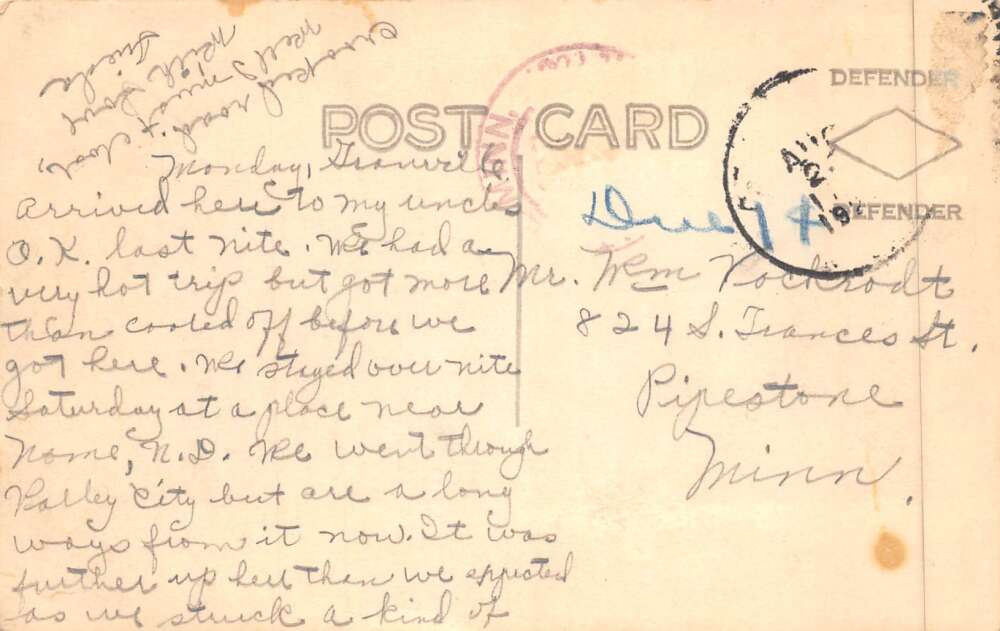 POST CARD
DEFENDER
DEFENDER
AUG
21
19
MINN.
Due 1¢
Mr. Wm Pockrodt
824 S. Frances St.
Pipestone
Minn.
Monday, Granville
Arrived here to my uncles
O.K. last nite. We had a
very hot trip but got more
than cooled off before we
got here. We stayed over nite
Saturday at a place near
Nome, N.D. We went through
Valley City but are a long
ways from it now. It was
further up here than we expected
as we struck a kind of
crooked road. + close,
Well I must
With love
Frieda